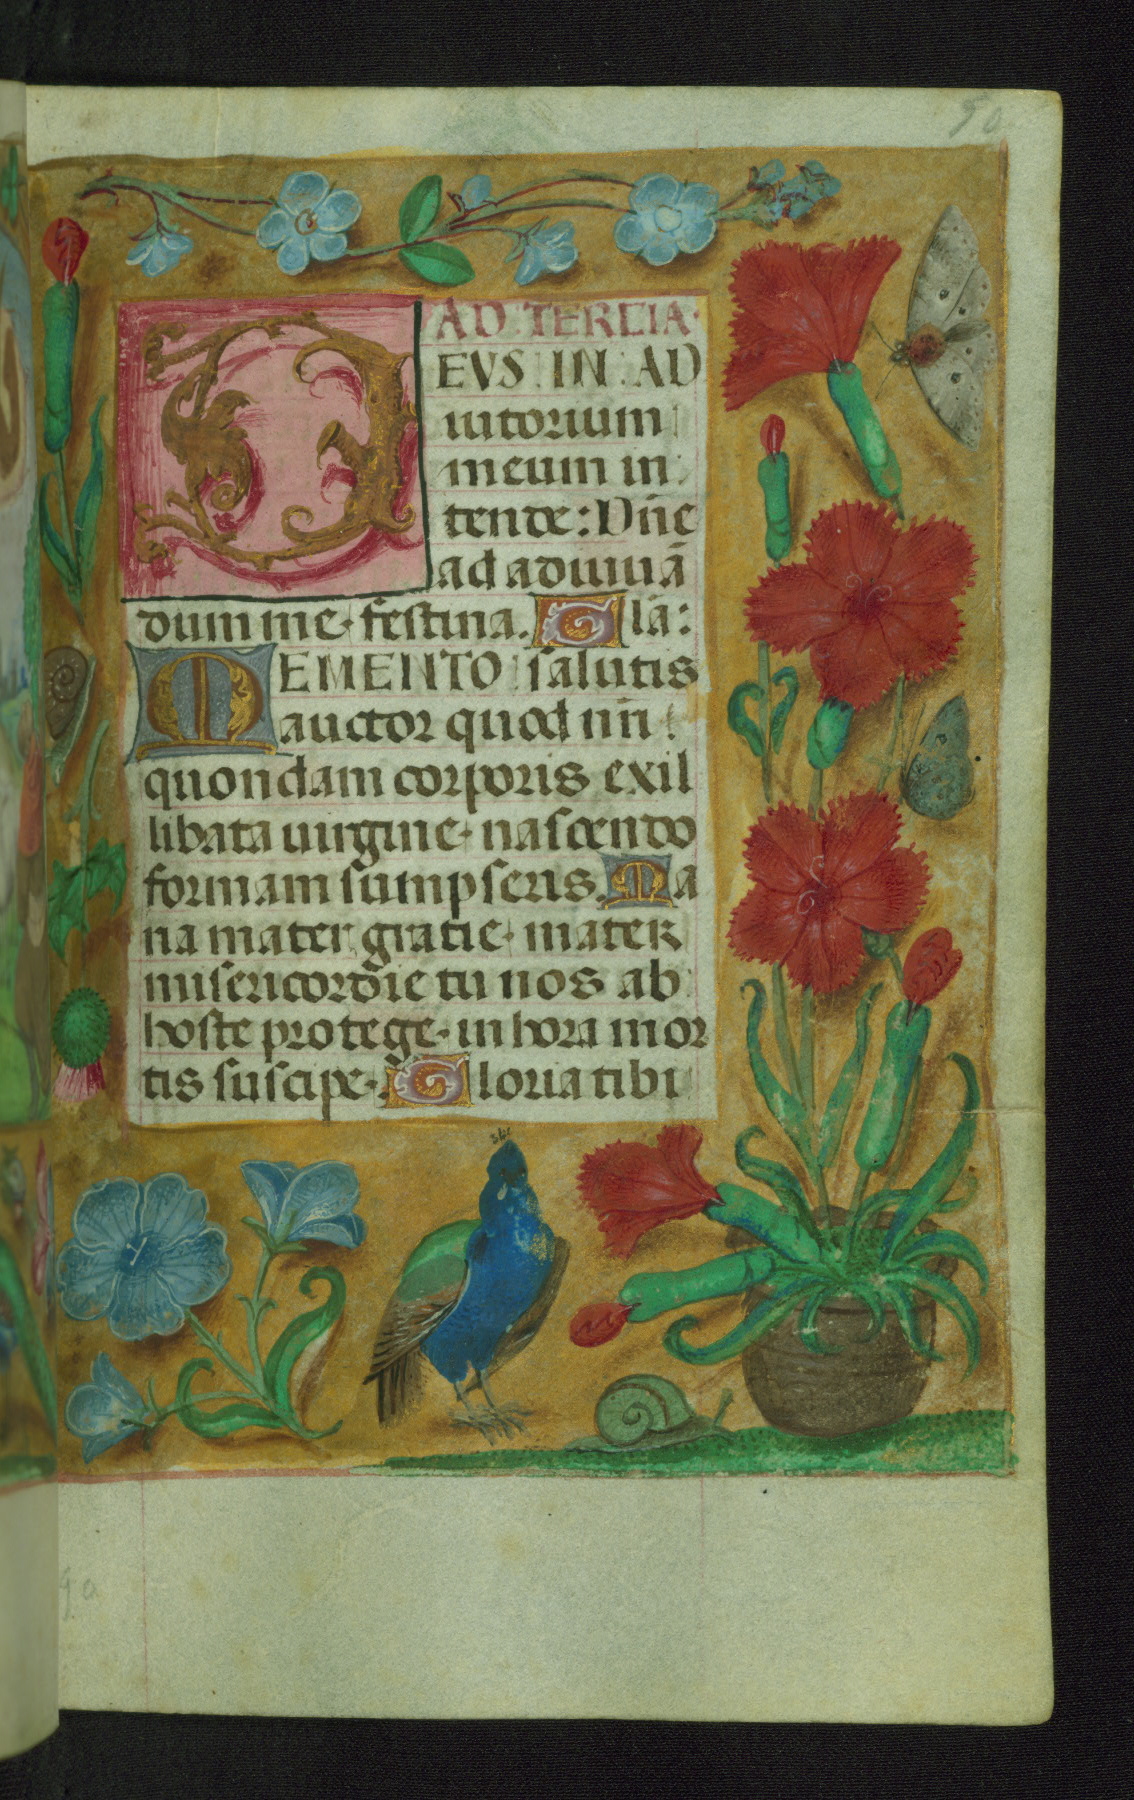 50
AD TERCIA·
DEVS IN AD
iutorium
meum in
tende: Dn̄e
ad adiuuā
dum me festina. Glā:
MEMENTO salutis
auctor quod nr̄i
quondam corporis ex il
libata uirgine· nascendo
formam sumpseris. Ma
ria mater gratie· mater
misericordie tu nos ab
hoste protege· in hora mor
tis suscipe· Gloria tibi